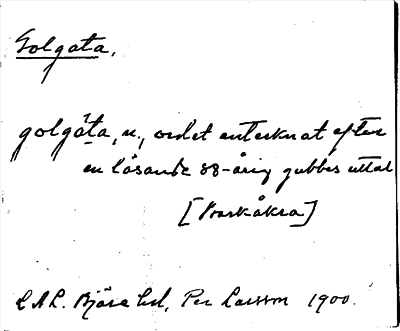 Golgata.
golgáta, n., ordet antecknat efter
en läsande 88-årig gubbes uttal
[Barkåkra]
L.A.L. Bjäre hd, Per Larsson 1900.